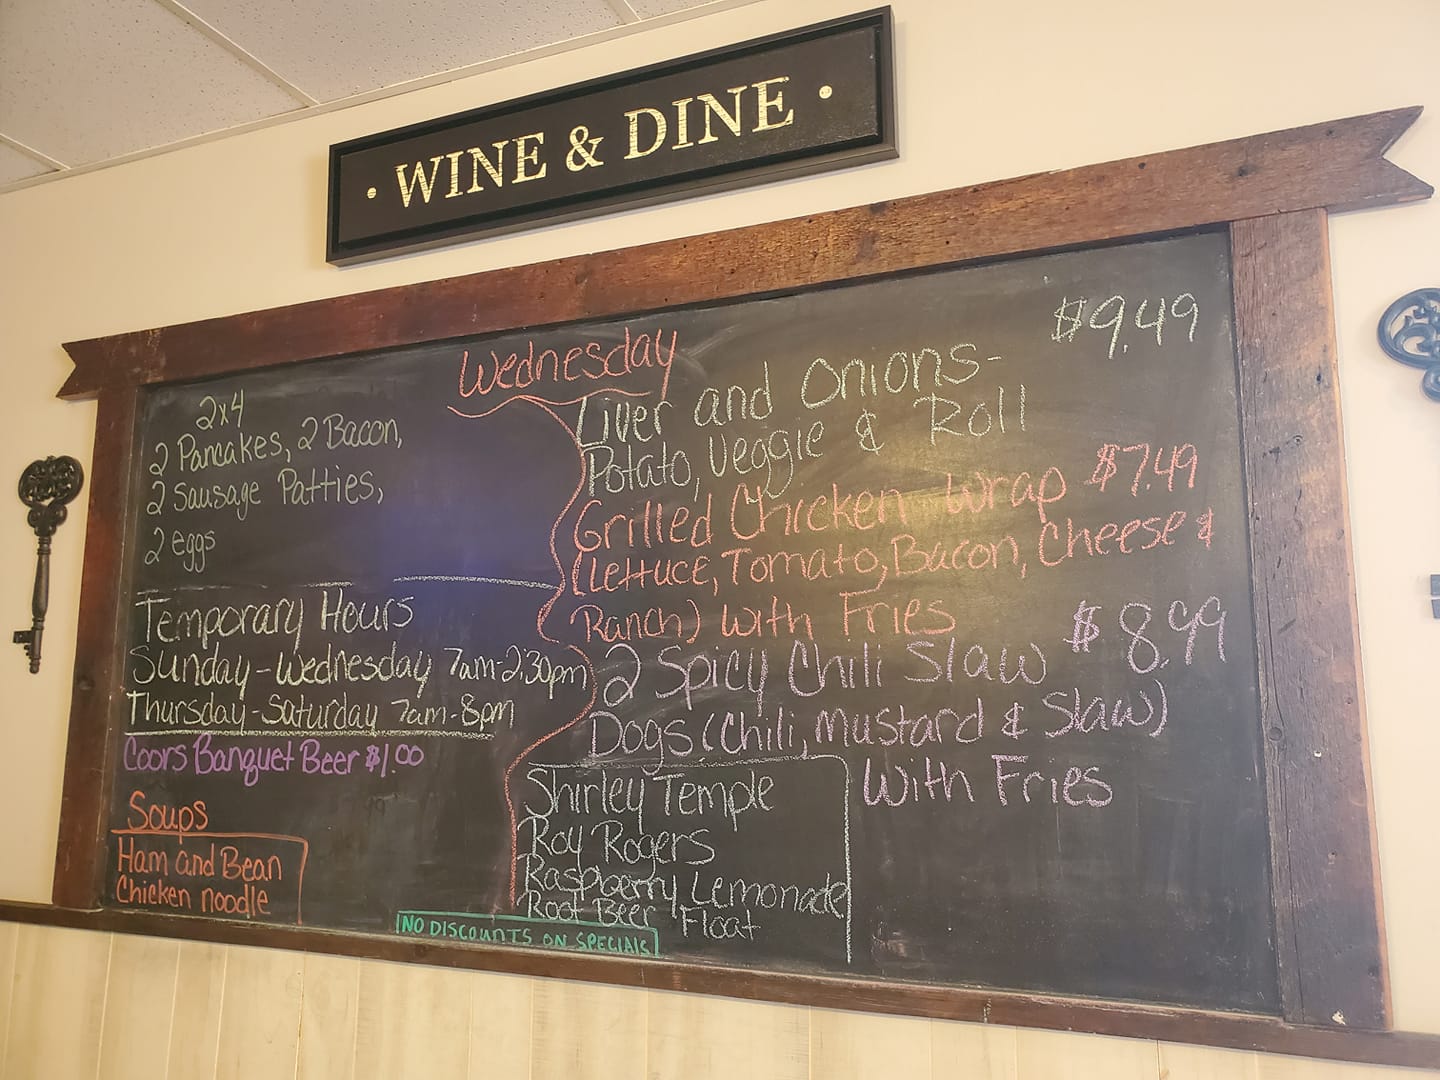 • WINE & DINE •
Wednesday
2x4
2 Pancakes, 2 Bacon,
2 Sausage Patties,
2 eggs
Temporary Hours
Sunday-Wednesday 7am-2:30pm
Thursday-Saturday 7am-8pm
Coors Banquet Beer $1.00
Soups
Ham and Bean
Chicken noodle
$9.49
Liver and Onions-
Potato, Veggie & Roll
Grilled Chicken Wrap $7.49
(Lettuce, Tomato, Bacon, Cheese &
Ranch) with Fries
2 Spicy Chili Slaw $8.99
Dogs (Chili, Mustard & Slaw)
with Fries
Shirley Temple
Roy Rogers
Raspberry Lemonade
Root Beer Float
NO DISCOUNTS ON SPECIALS